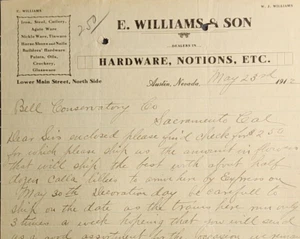 E. WILLIAMS
W. J. WILLIAMS
250
E. WILLIAMS & SON
Iron, Steel, Cutlery,
Agate Ware
Nickle Ware, Tinware
Horse Shoes and Nails
Builders' Hardware
Paints, Oils,
Crockery,
Glassware
DEALERS IN
HARDWARE, NOTIONS, ETC.
Lower Main Street, North Side
Austin, Nevada, May 23rd 1912
Bell Conservatory Co
Sacramento Cal
Dear Sirs enclosed please find check for 2.50
for which please ship the amount in flowers
that will ship the best with about half
dozen Calla lillies to arrive here by Express on
May 30th Decoration day be careful to
ship on the date as the trains here run only
3 times a week hoping that you will send
us a good assortment for the occasion we remain